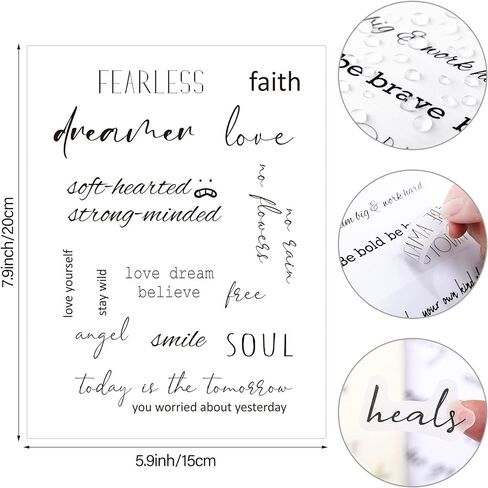 FEARLESS
faith
dreamer
love
soft-hearted
strong-minded
no rain
no flowers
love yourself
stay wild
love dream
believe
free
angel
smile
SOUL
today is the tomorrow
you worried about yesterday
7.9inch/20cm
5.9inh/15cm
big & work ha
be brave
am big & work hard
Be bold be
your own kind
heals